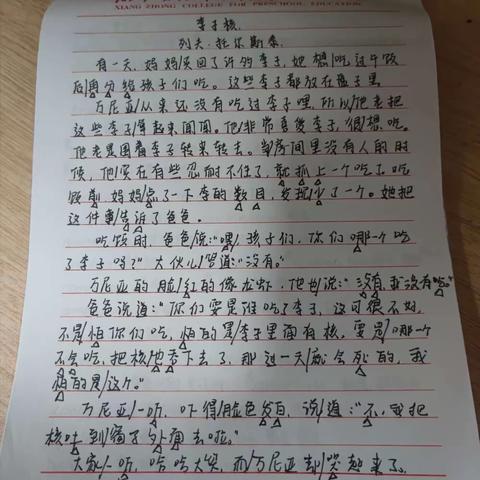 XIANG ZHONG COLLEGE FOR PRESCHOOL EDUCATION
李子核
列夫·托尔斯泰
有一天，妈妈买回了许多李子，她想/吃过午饭
后/再分给孩子们吃。这些李子都放在盘子里
万尼亚/从来还没有吃过李子哩，所以/他老把
这些李子/拿起来闻闻。他/非常喜爱李子，很/想吃。
他老是围着李子转来转去。当/房间里没有人的时
候，他/实在有些忍耐不住了，就抓上一个吃了。吃
饭前，妈妈/点了一下李的数目，发现/少了一个。她把
这件事/告诉了爸爸。
吃饭时，爸爸/说："嘿/孩子们，你们/哪一个吃
了李子吗？"大伙儿/答道："没有。"
万尼亚的脸/红的像龙虾，他也/说："没有，我没有吃。"
爸爸说道："你们要是谁吃了李子，这可很不好，
不是/怕你们吃，怕的是/李子里面有核，要是/哪一个
不会吃，把核/也吞下去了，那过一天/就会死的，我
怕的是/这个。"
万尼亚/一听，吓得/脸色发白，说/道："不，我把
核吐到窗子外面去啦。"
大家/一听，哈哈大笑，而/万尼亚却/哭起来了。